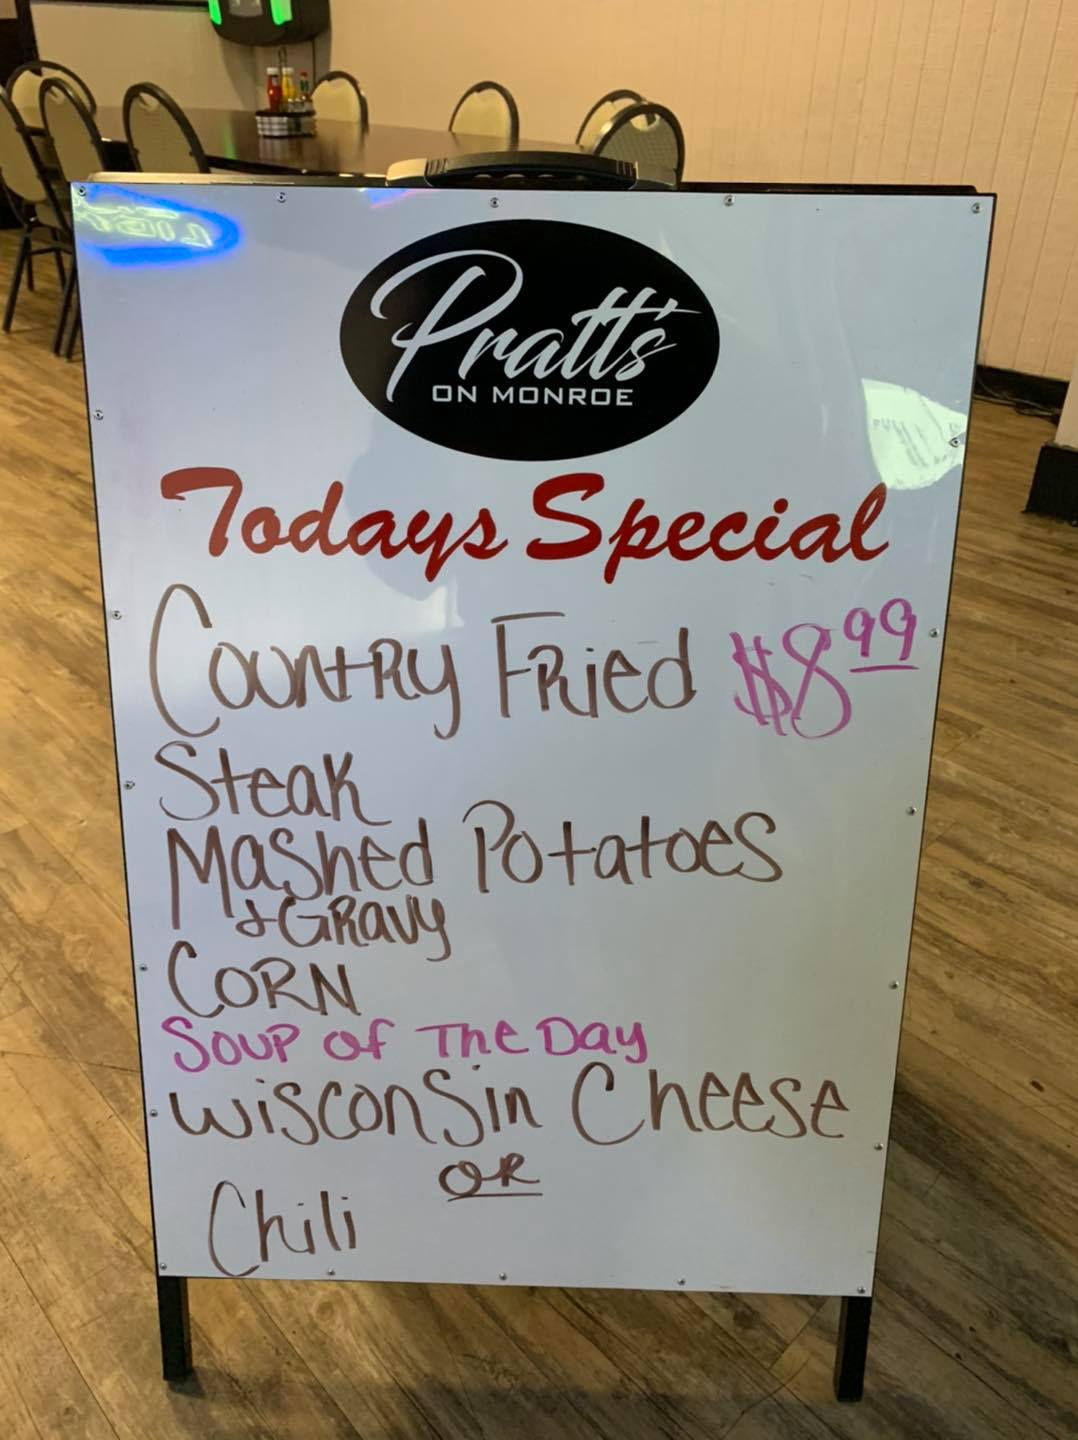 Pratt's
ON MONROE
Todays Special
Country Fried $8.99
Steak
Mashed Potatoes
& Gravy
Corn
Soup of The Day
Wisconsin Cheese
or
Chili